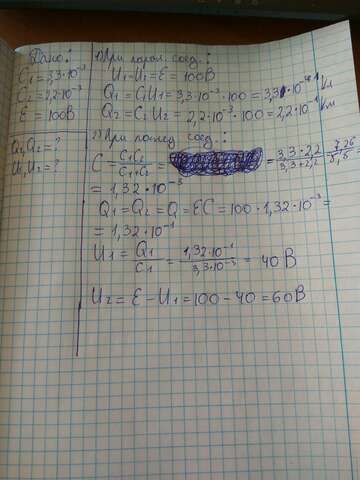 Дано:
C₁ = 3,3·10⁻³
C₂ = 2,2·10⁻³
Ɛ = 100В
Q₁, Q₂ = ?
U₁, U₂ = ?
1) При парал. соед.:
U₁ - U₁ = Ɛ = 100В
Q₁ = C₁U₁ = 3,3·10⁻³·100 = 3,3·10⁻¹ Кл
Q₂ = C₂U₂ = 2,2·10⁻³·100 = 2,2·10⁻¹ Кл
2) При послед. соед.:
C = C₁C₂ / C₁+C₂ = = 3,3·2,2 / 3,3+2,2 = 7,26 / 5,5
= 1,32·10⁻³
Q₁ = Q₂ = Q = ƐC = 100·1,32·10⁻³ =
= 1,32·10⁻¹
U₁ = Q₁ / C₁ = 1,32·10⁻¹ / 3,3·10⁻³ = 40В
U₂ = Ɛ - U₁ = 100 - 40 = 60В